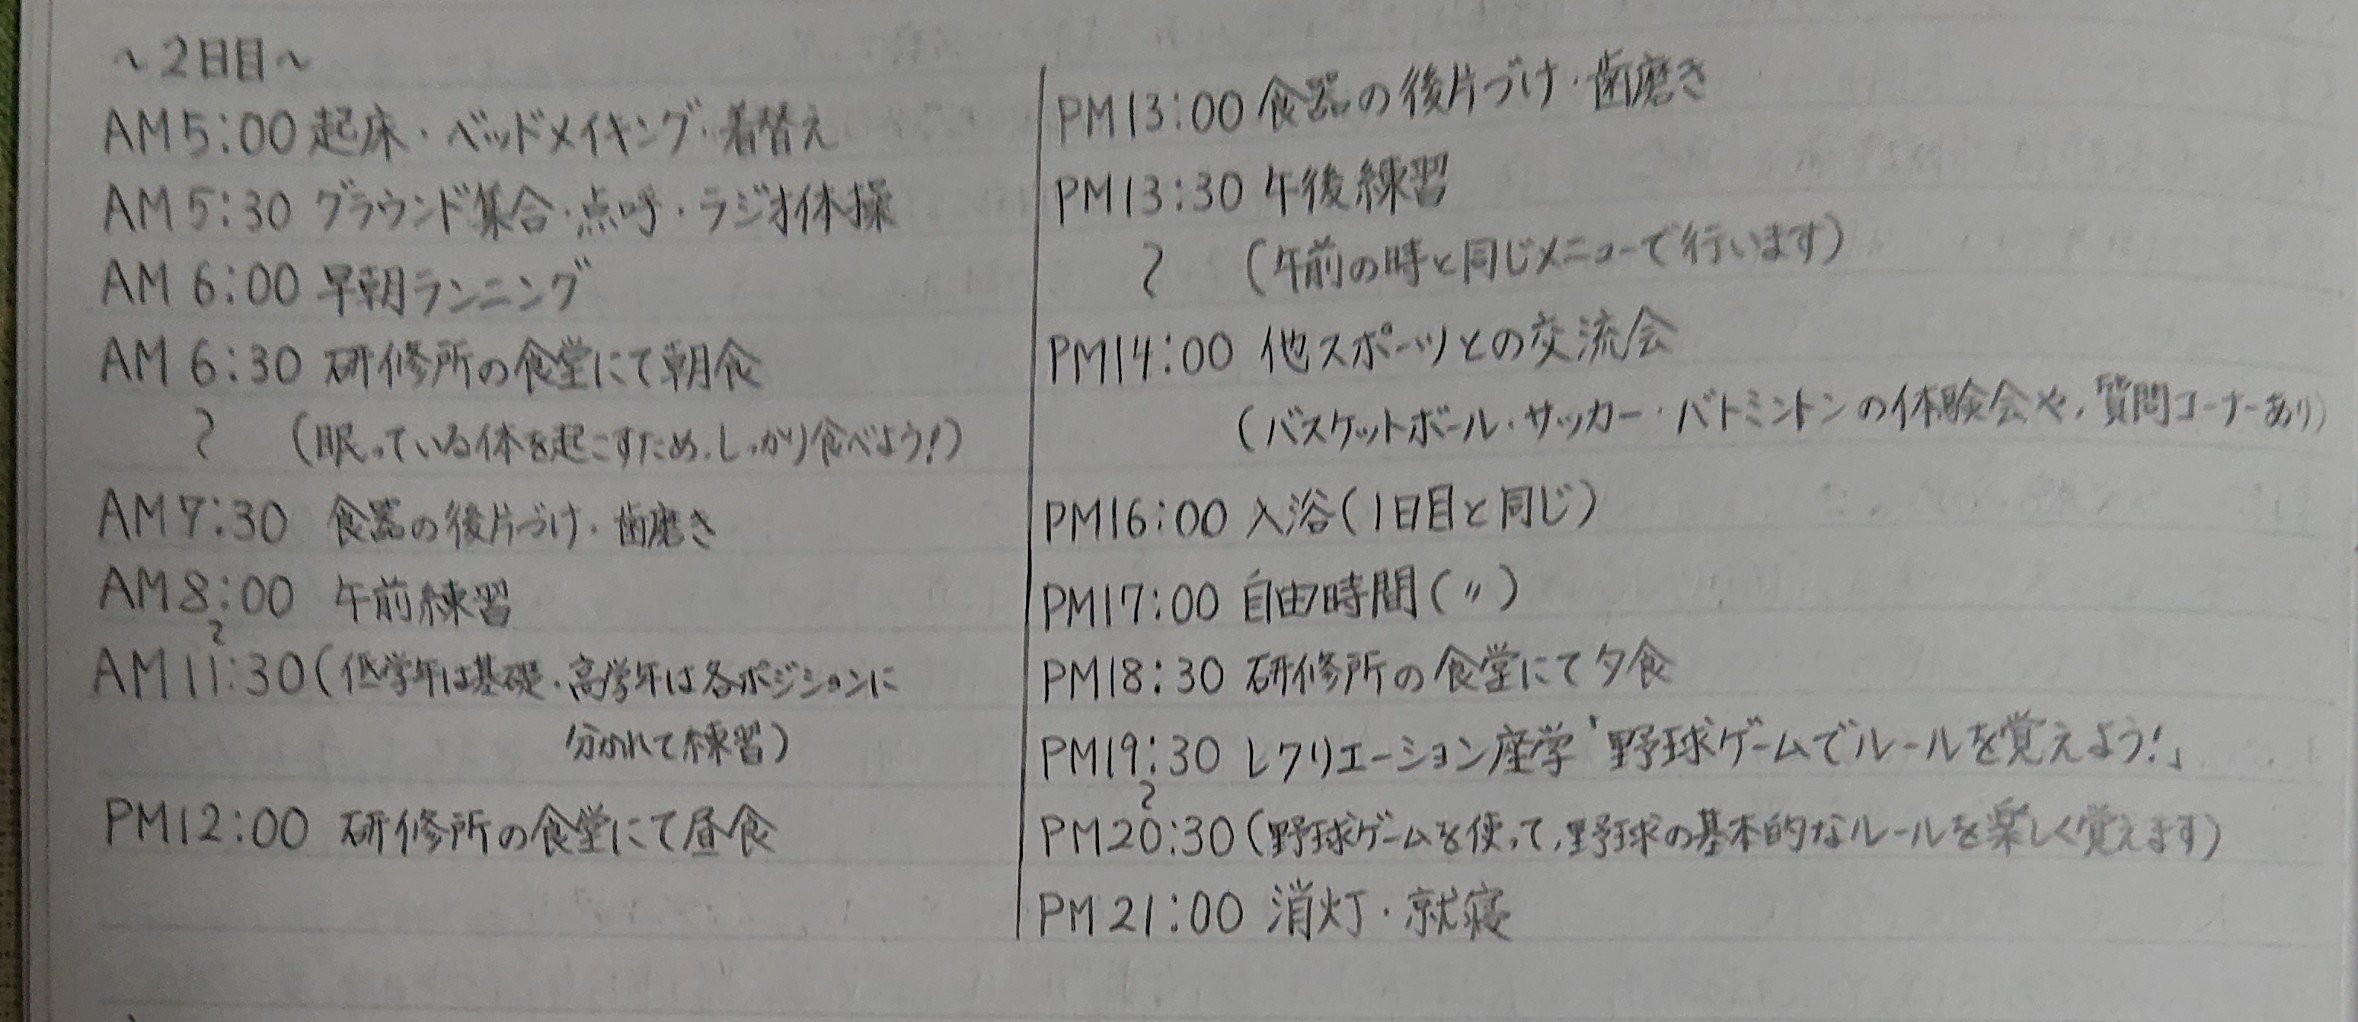 ~2日目~
AM5:00 起床・ベッドメイキング・着替え
AM5:30 グラウンド集合・点呼・ラジオ体操
AM 6:00 早朝ランニング
AM 6:30 研修所の食堂にて朝食
~ (眠っている体を起こすため、しっかり食べよう!)
AM7:30 食器の後片づけ・歯磨き
AM8:00 午前練習
~
AM11:30(低学年は基礎・高学年は各ポジションに
分かれて練習)
PM12:00 研修所の食堂にて昼食
PM13:00 食器の後片づけ・歯磨き
PM13:30 午後練習
~ (午前の時と同じメニューで行います)
PM14:00 他スポーツとの交流会
(バスケットボール・サッカー・バトミントンの体験会や、質問コーナーあり)
PM16:00 入浴(1日目と同じ)
PM17:00 自由時間(〃)
PM18:30 研修所の食堂にて夕食
PM19:30 レクリエーション座学「野球ゲームでルールを覚えよう!」
~
PM20:30(野球ゲームを使って、野球の基本的なルールを楽しく覚えます)
PM21:00 消灯・就寝